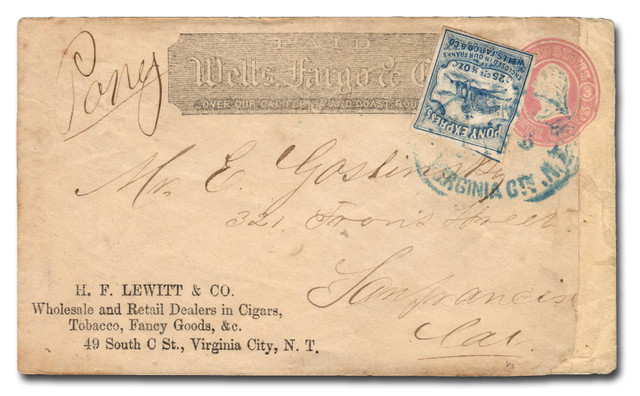 Pony
PAID
Wells, Fargo & C
OVER OUR CALIFORNIA AND COAST ROU
WELLS, FARGO & CO.
ENCLOSED IN OUR FRANKS
25 cts ½ OZ
PONY EXPRESS
VIRGINIA CITY N.T.
Mr. E. Goslinsky
321 Front Street
San francisc
Cal.
H. F. LEWITT & CO.
Wholesale and Retail Dealers in Cigars,
Tobacco, Fancy Goods, &c.
49 South C St., Virginia City, N. T.